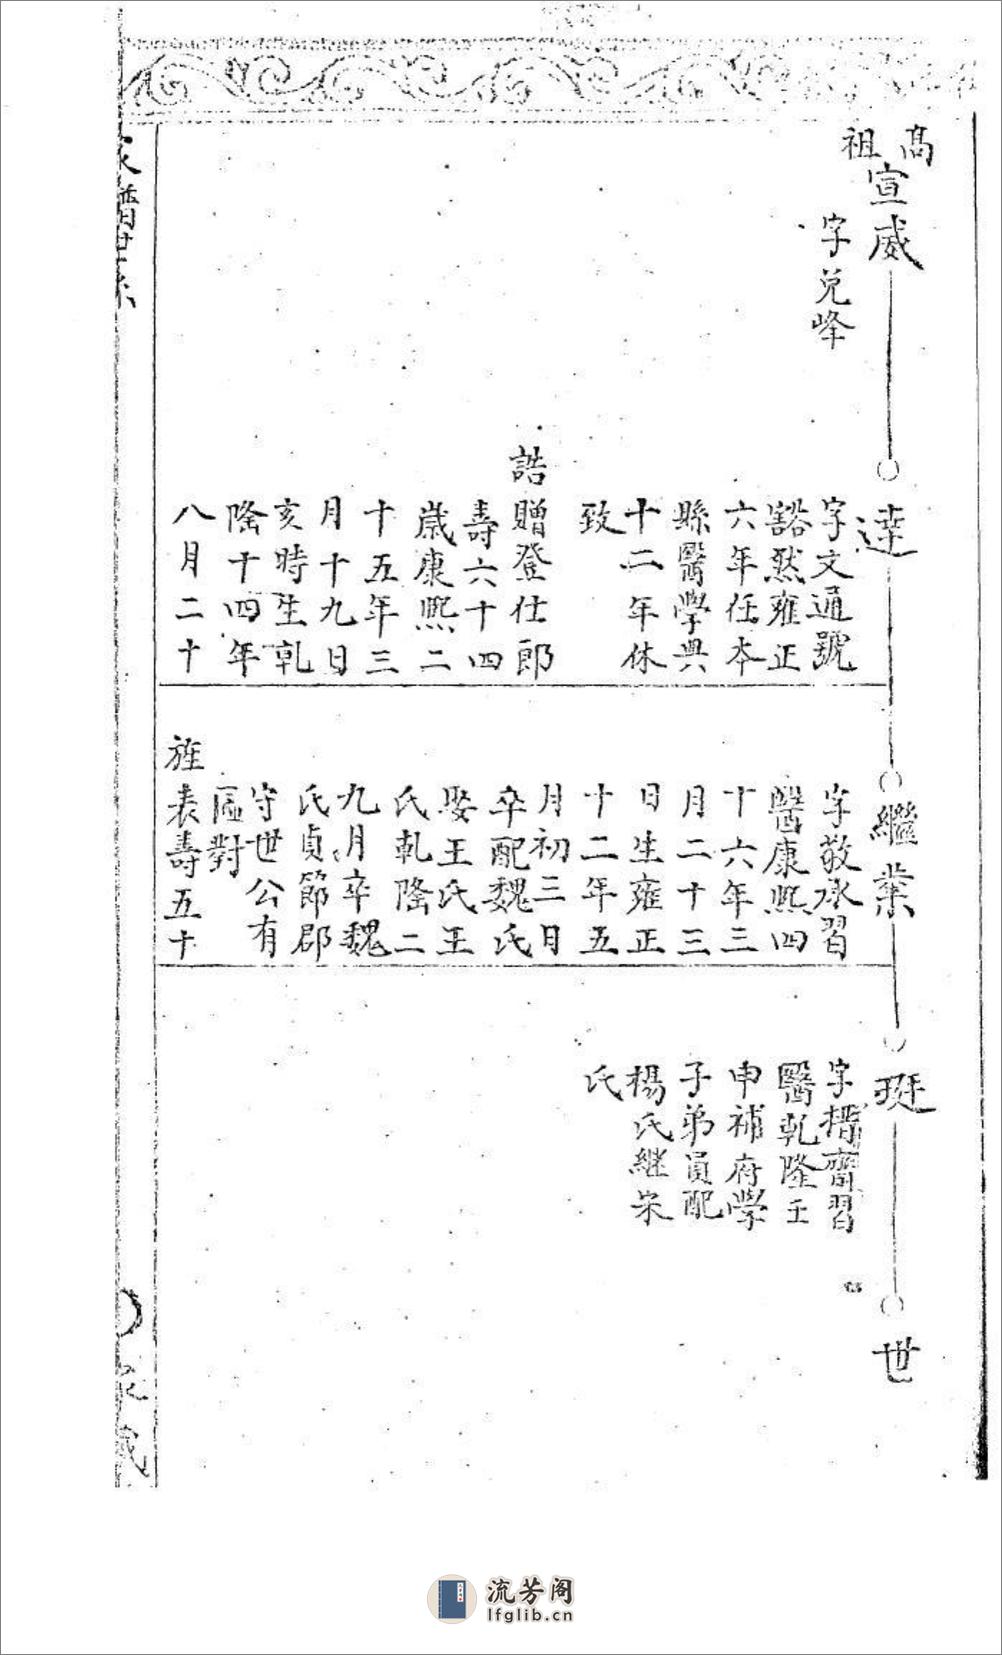 高祖
宣威
字兑峰
達
字文通號
豁然雍正
六年任本
縣醫學典
十二年休
致
誥贈登仕郎
壽六十四
歲康熙二
十五年三
月十九日
亥時生乹
隆十四年
八月二十
繼業
字敬承習
醫康熙四
十六年三
月二十三
日生雍正
十二年五
月初三日
卒配魏氏
娶王氏王
氏乹隆二
九月卒魏
氏貞節郡
守世公有
匾對
旌表壽五十
珽
字搢齋習
醫乹隆壬
申補府學
子弟員配
楊氏継宋
氏
世
家譜世系
家藏
流芳阁
lfglib.cn